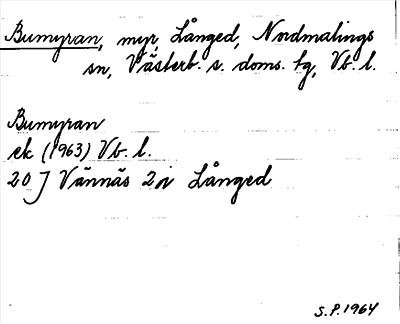 Bumyran, myr, Långed, Nordmalings
sn, Västerb. s. doms. tg, Vb. l.
Bumyran
ek (1963) Vb. l.
20 J Vännäs 2 i Långed
S.P. 1964